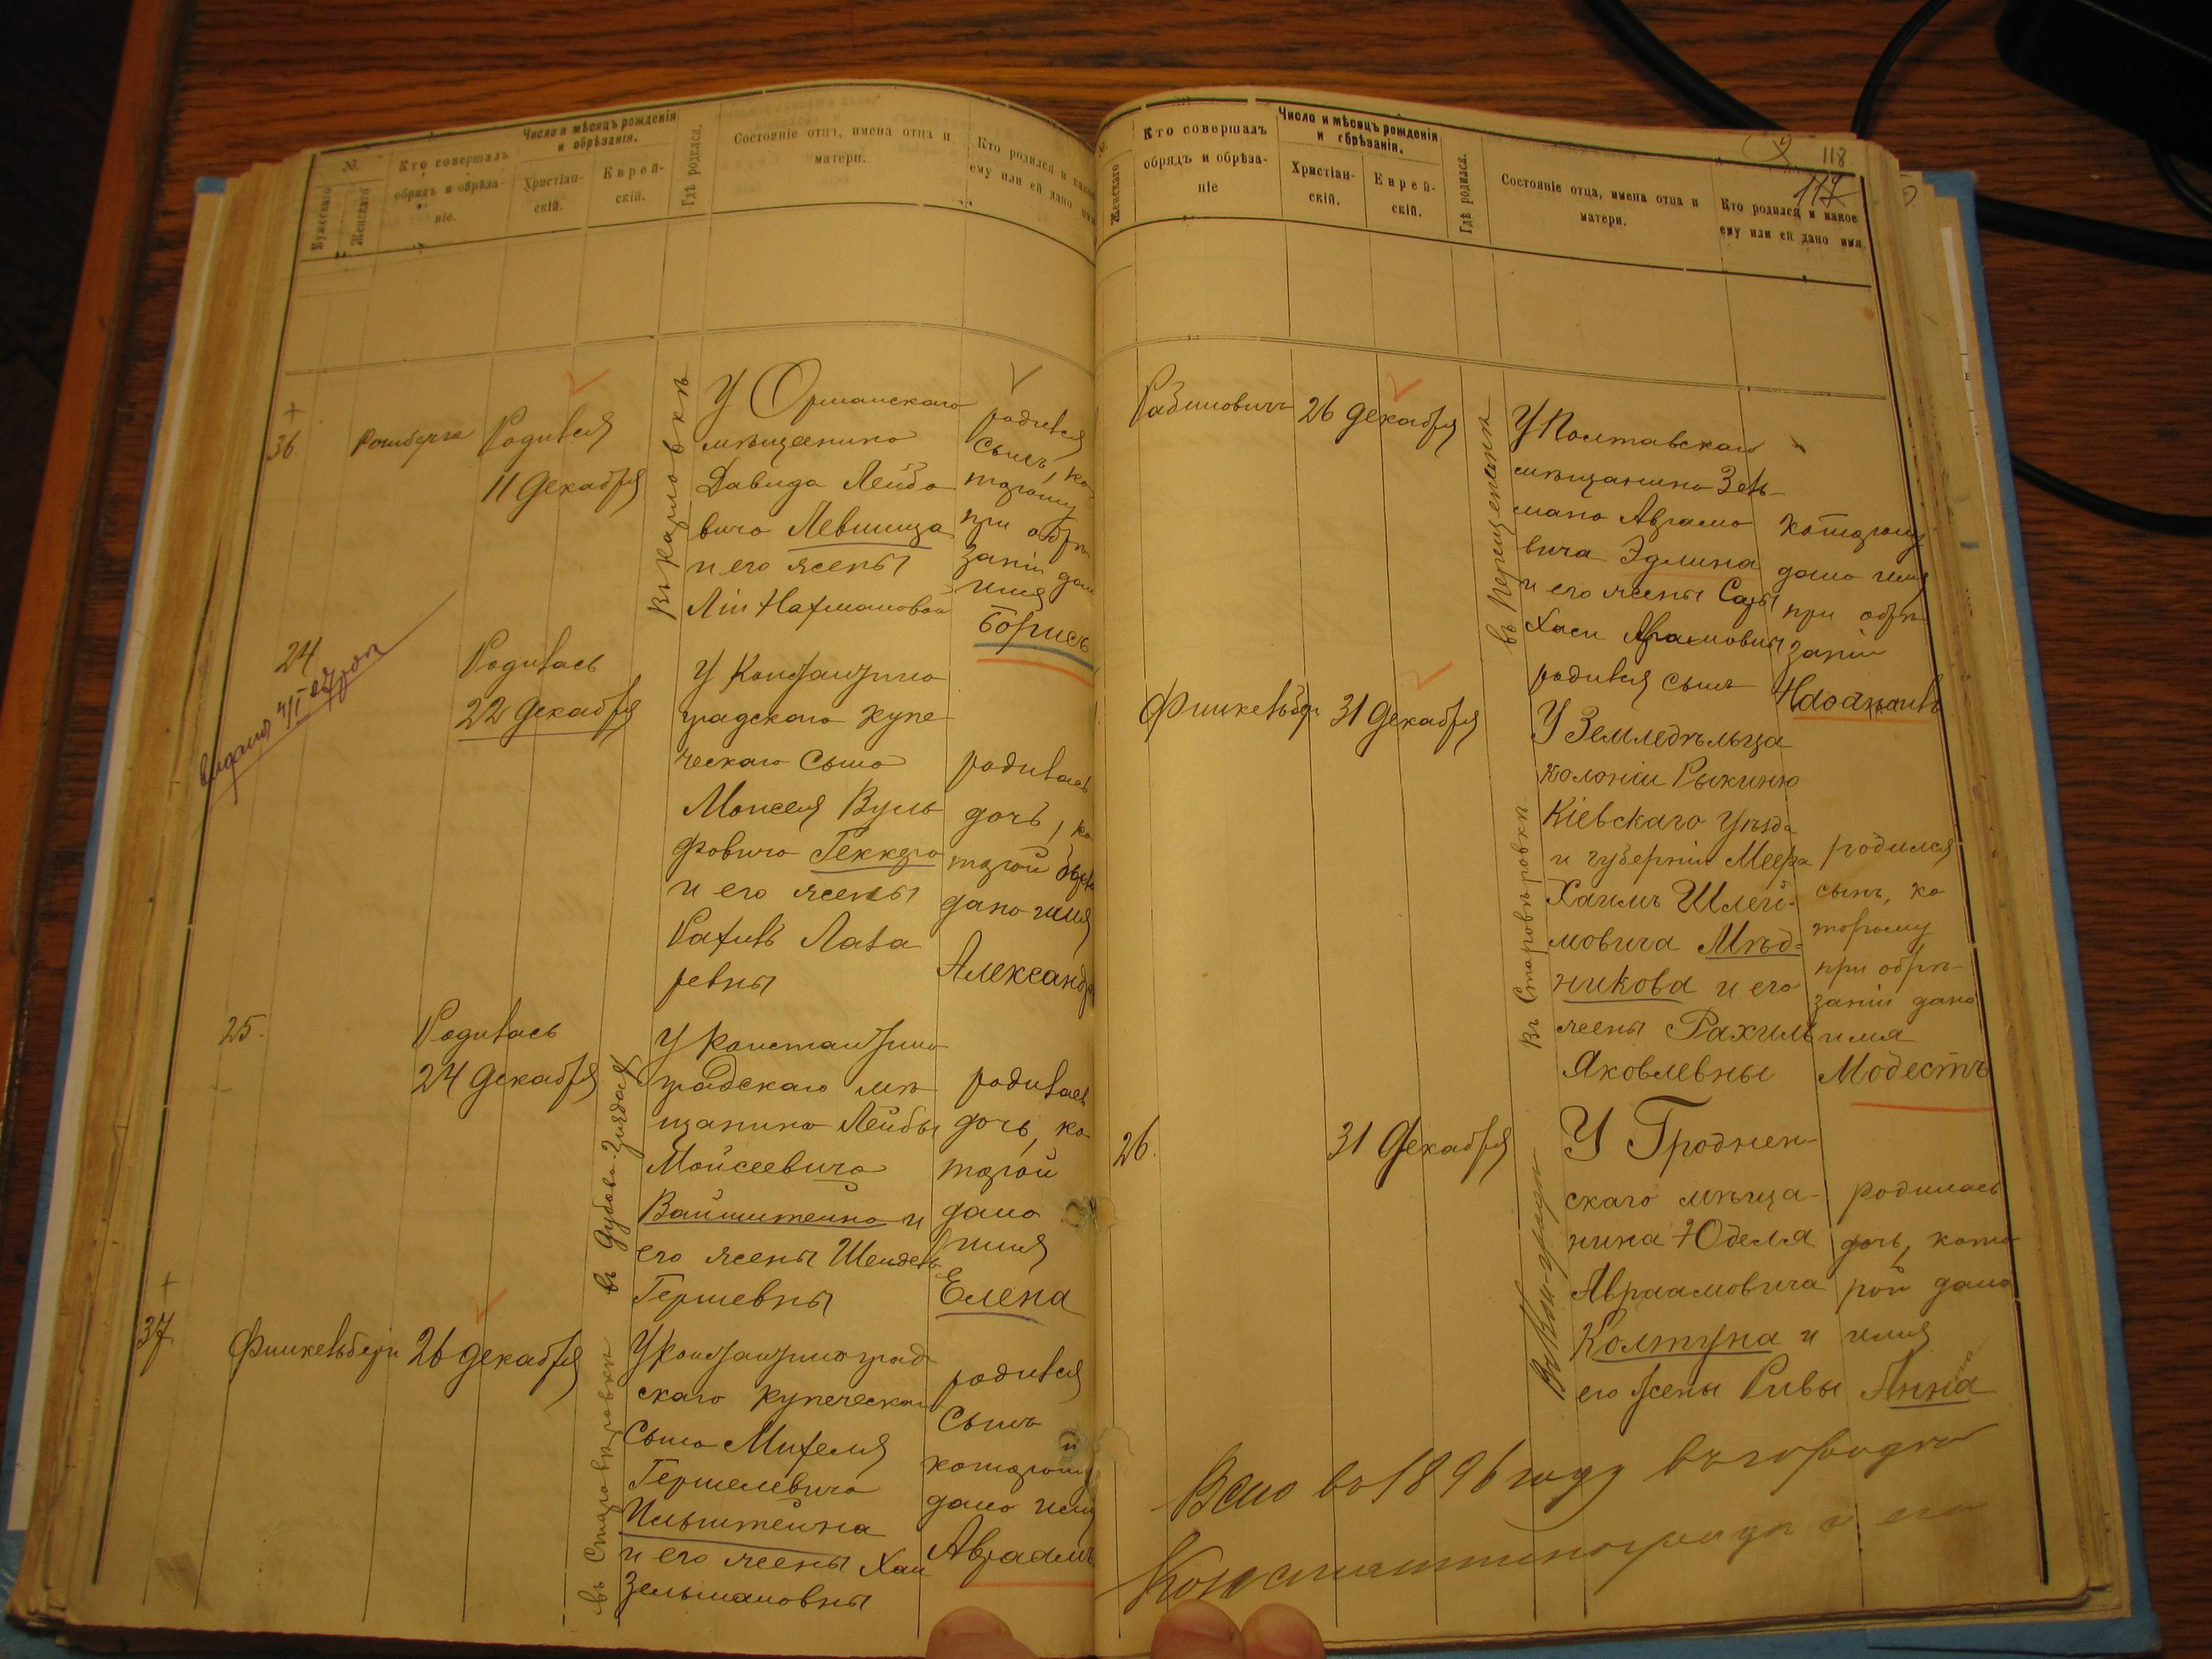 №
Мужескаго
Женскаго
Кто совершалъ
обрядъ и обрѣза-
ніе.
Число и мѣсяцъ рожденія
и обрѣзанія.
Христіан-
скій.
Еврей-
скій.
Гдѣ родился.
Состояніе отца, имена отца и
матери.
Кто родился и какое
ему или ей дано имя
36
Родился
11 Декабря
въ Карловкѣ
У Оршанскаго
мѣщанина
Давида Лейбо
вича Левшица
и его жены
Ліи Нахмановой
родился
сынъ, ко
торому
при обрѣ
заніи дано
имя
Борисъ
24
Родилась
22 Декабря
У Константино
градскаго купе
ческаго сына
Моисея Вуль
фовича Геккера
и его жены
Рахиль Лаза
ревны
родилась
дочь, ко
торой
дано имя
Александра
25.
Родилась
24 Декабря
У Константино
градскаго мѣ
щанина Лейбы
Мойсеевича
Вайнштейна и
его жены Шендель
Гершевны
родилась
дочь, ко
торой
дано
имя
Елена
37
Финкельбергъ
26 Декабря
въ Старовѣровкѣ
У Константиноград
скаго купеческаго
сына Михеля
Гершелевича
и его жены Хаи
Зельмановны
родился
сынъ
которому
дано имя
Авраамъ
Женскаго
Кто совершалъ
обрядъ и обрѣза-
ніе
Число и мѣсяцъ рожденія
и обрѣзанія.
Христіан-
скій.
Еврей-
скій.
Гдѣ родился.
Состояніе отца, имена отца и
матери.
Кто родился и какое
ему или ей дано имя.
118
117
Рабиновичъ
26 Декабря
въ Перещепинѣ
У Полтавскаго
мѣщанина Зель-
мана Аврамо
вича Эдлина
и его жены Сары
Хаси Абрамовны
родился сынъ
которому
дано имя
при обрѣ
заніи
Финкельбергъ
31 Декабря
Въ Старовѣровкѣ
У Земледѣльца
колоніи Рыкуню
Кіевскаго Уѣзда
и губерніи Меера
Хаимъ Шлей-
мовича Мѣд-
никова и его
жены Рахиль
Яковлевны
родился
сынъ, ко
торому
при обрѣ-
заніи дано
имя
Модестъ
26.
31 Декабря
У Гроднен-
скаго мѣща-
нина Юделя
Авраамовича
Колтуна и
его жены Ривы
родилась
дочь, кото
рой дано
имя
Анна
Всего въ 1896 году въ городѣ
Константиноградѣ и его